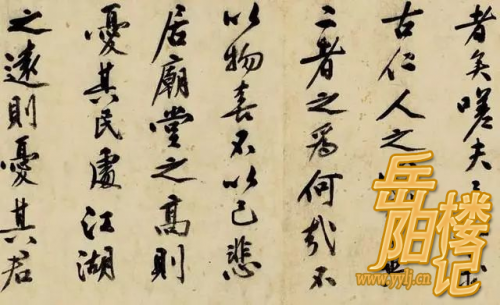 者矣嗟夫
古仁人之
二者之為何哉不
以物喜不以己悲
居廟堂之高則
憂其民處江湖
之遠則憂其君
岳阳楼记
www.yylj.cn